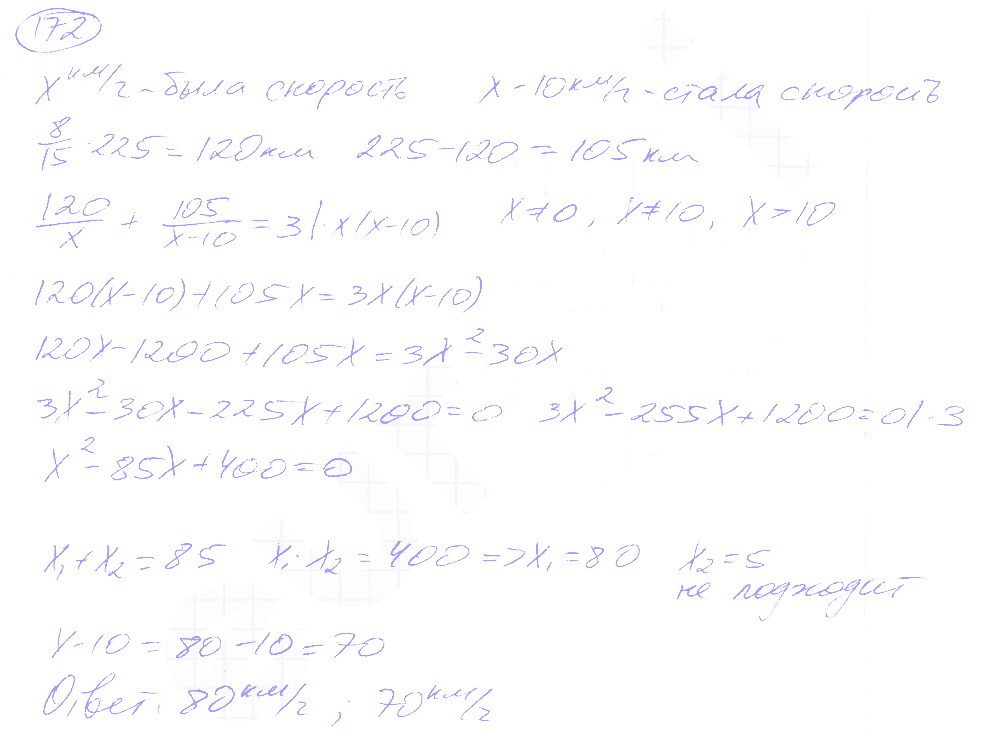 172
x км/ч - была скорость x - 10 км/ч - стала скорость
8/15 · 225 = 120 км 225 - 120 = 105 км
120/x + 105/(x-10) = 3 | · x(x-10) x ≠ 0, x ≠ 10, x > 10
120(x-10) + 105x = 3x(x-10)
120x - 1200 + 105x = 3x² - 30x
3x² - 30x - 225x + 1200 = 0 3x² - 255x + 1200 = 0 | · 3
x² - 85x + 400 = 0
x₁ + x₂ = 85 x₁ · x₂ = 400 => x₁ = 80 x₂ = 5
не подходит
x - 10 = 80 - 10 = 70
Ответ: 80 км/ч ; 70 км/ч